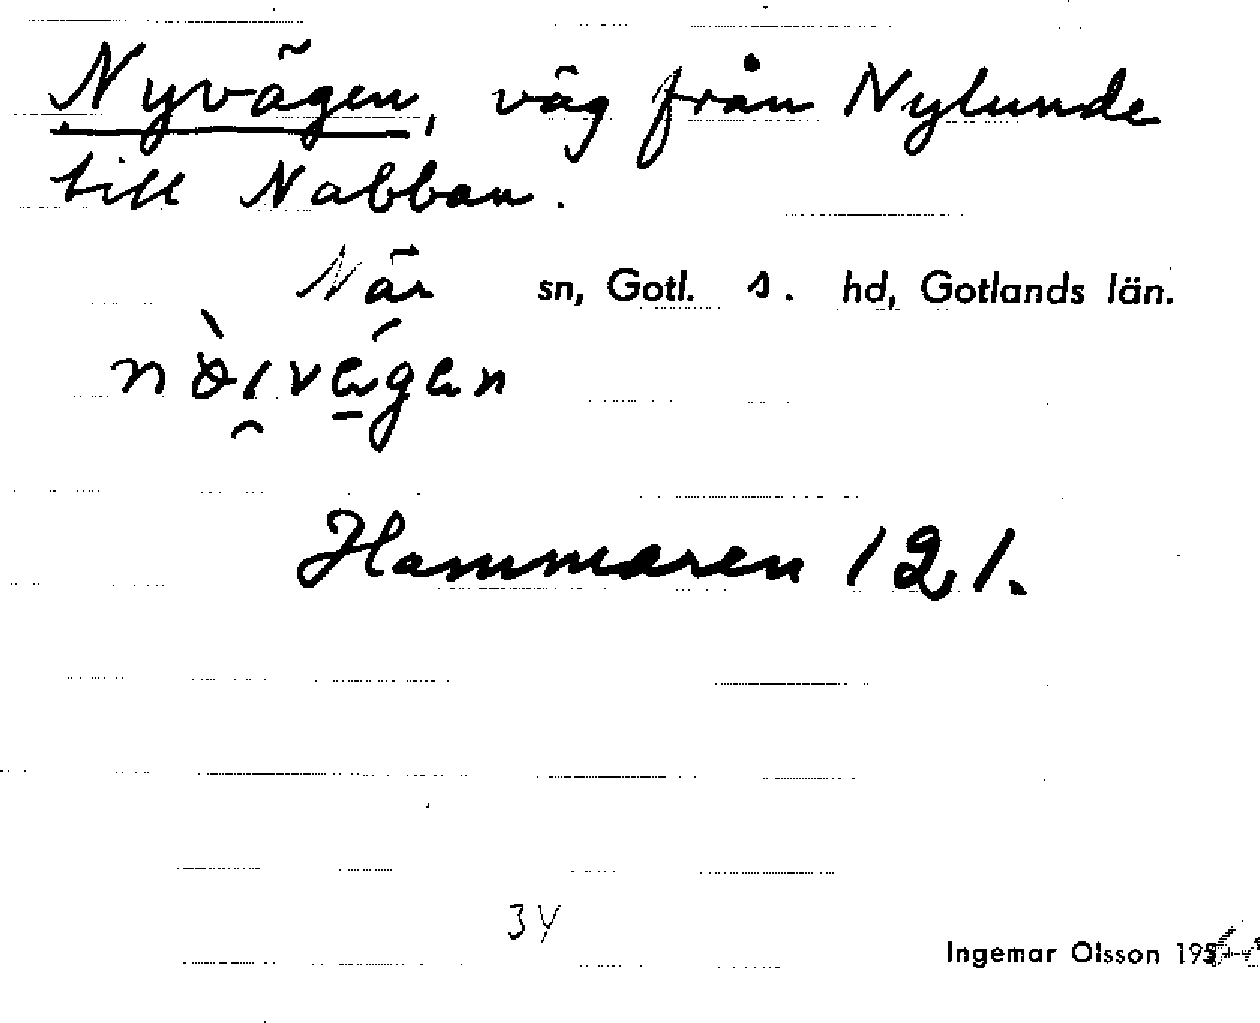 Nyvägen, väg från Nylunde
till Nabban.
När sn, Gotl. s. hd, Gotlands län.
Hammaren 121.
3Y
Ingemar Olsson